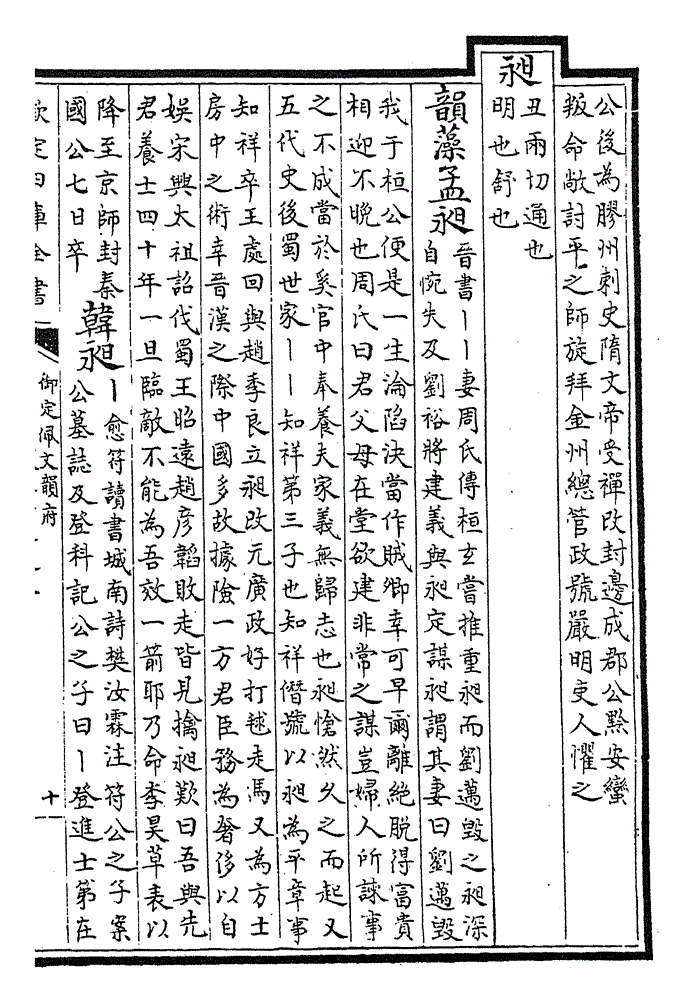 公後為膠州刺史隋文帝受禪改封邉成郡公黔安蠻
叛命敞討平之師旋拜金州總管政號嚴明吏人懼之
昶
丑兩切通也
明也舒也
韻藻孟昶
晉書｜｜妻周氏傳桓玄嘗推重昶而劉邁毀之昶深
自惋失及劉裕將建義與昶定謀昶謂其妻曰劉邁毀
我于桓公便是一生淪陷決當作賊卿幸可早爾離絶脱得富貴
相迎不晚也周氏曰君父母在堂欲建非常之謀豈婦人所諫事
之不成當於奚官中奉養夫家義無歸志也昶愴然久之而起又
五代史後蜀世家｜｜知祥第三子也知祥僭號以昶為平章事
知祥卒王處回與趙季良立昶改元廣政好打毬走馬又為方士
房中之術幸晉漢之際中國多故據險一方君臣務為奢侈以自
娛宋興太祖詔伐蜀王昭遠趙彦韜敗走皆見擒昶歎曰吾與先
君養士四十年一旦臨敵不能為吾效一箭耶乃命李昊草表以
降至京師封秦
國公七日卒
韓昶
｜愈符讀書城南詩樊汝霖注符公之子案
公墓誌及登科記公之子曰｜登進士第在
欽定四庫全書
御定佩文韻府
十一